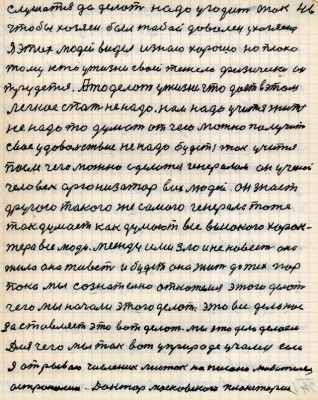 слушатся да делат надо угодит так не
чтобы хозяен был табой доволен ухозяена
Я этих людей видел и знаю хорошо но плохо
тому кто у жизни своей тежело физически он
трудетия. Ето делат у жизни что даст в этом
легкое стат не надо. нам надо учится жит
не надо то думат от чего можно получит
свае удовольствие не надо будет так учится
после чего можно сделатся генералом он ученой
человек организатар всих людей. он знает
другого такого же самого генерала тоже
так думает как думают все высокого харак-
тера все люди. между ими зло и ненависть она
жила она живет и будет она жит до тех пор
пока мы сознателно откажемся этого делат
чего мы начали этого делат. Это все делное
заставляет это вот делат. мы это дело делаем
Для чего мы так вот у природе учали сем
Я отрываю численик листок написано любителям
астрономии. Доктор московского планетария